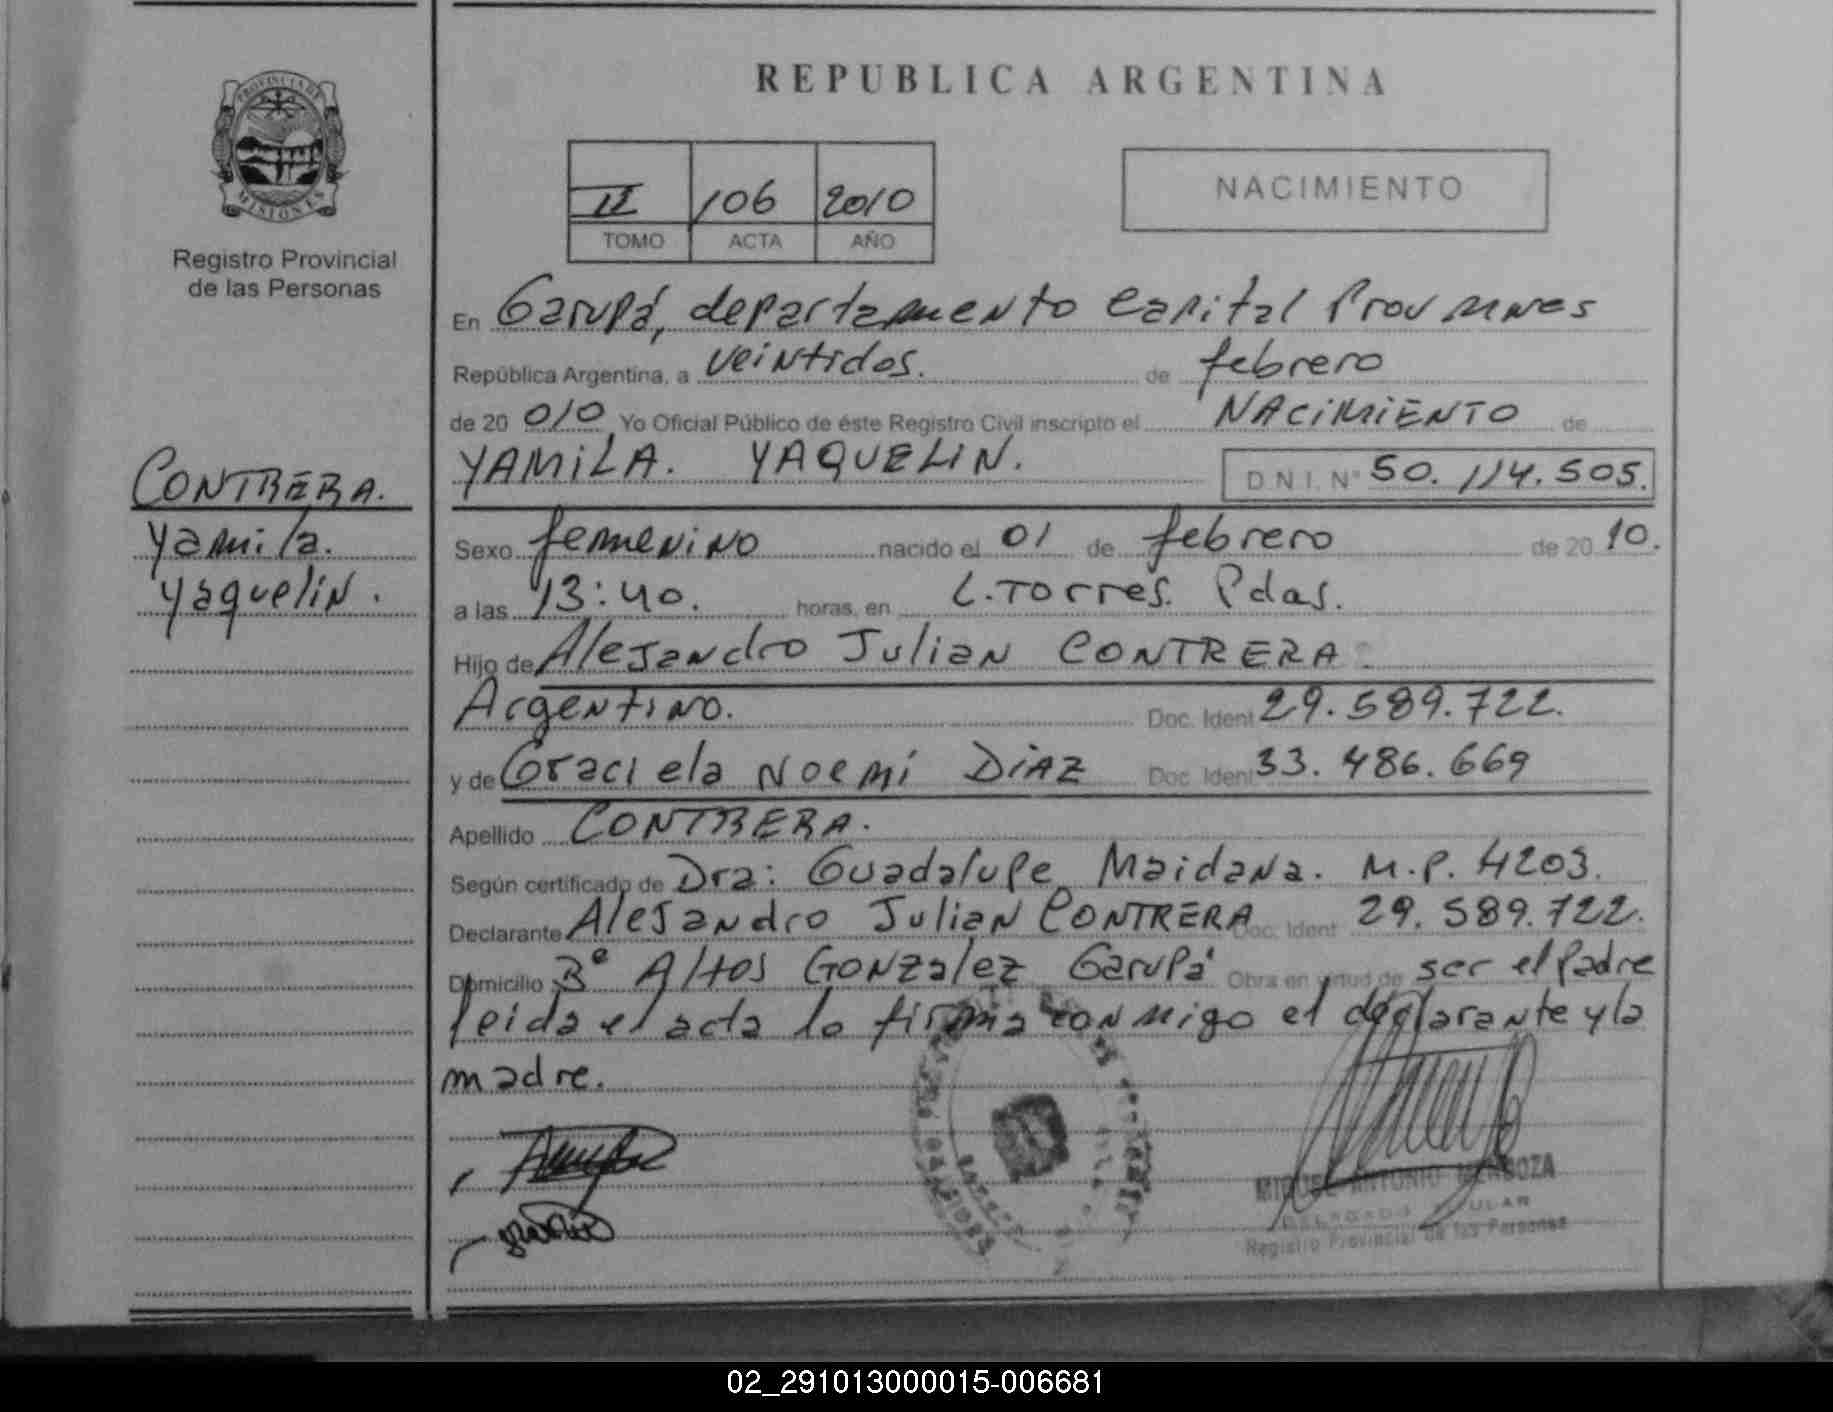 REPUBLICA ARGENTINA
PROVINCIA DE
MISIONES
Registro Provincial
de las Personas
II 106 2010
TOMO ACTA AÑO
NACIMIENTO
En Garupá, departamento Capital Prov Mnes
República Argentina, a veintidos. de febrero
de 20 010 Yo Oficial Público de éste Registro Civil inscripto el NACIMIENTO de
YAMILA. YAQUELIN. D.N.I. Nº 50.114.505.
CONTRERA.
Yamila.
Yaquelin.
Sexo femenino nacido el 01 de febrero de 20 10.
a las 13:40. horas, en L. Torres. Pdas.
Hijo de Alejandro Julian CONTRERA.
Argentino. Doc. Ident 29.589.722.
y de Graciela Noemi DiAZ Doc. Ident 33.486.669
Apellido CONTRERA.
Según certificado de Dra: Guadalupe Maidana. M.P. 4203.
Declarante Alejandro Julian CONTRERA Doc. Ident 29.589.722.
Domicilio 3º Altos Gonzalez Garupá Obra en virtud de ser el Padre
leida el acta lo firma conmigo el declarante y la
madre.
MIGUEL ANTONIO MENDOZA
DELEGADO TITULAR
Registro Provincial de las Personas
02_291013000015-006681